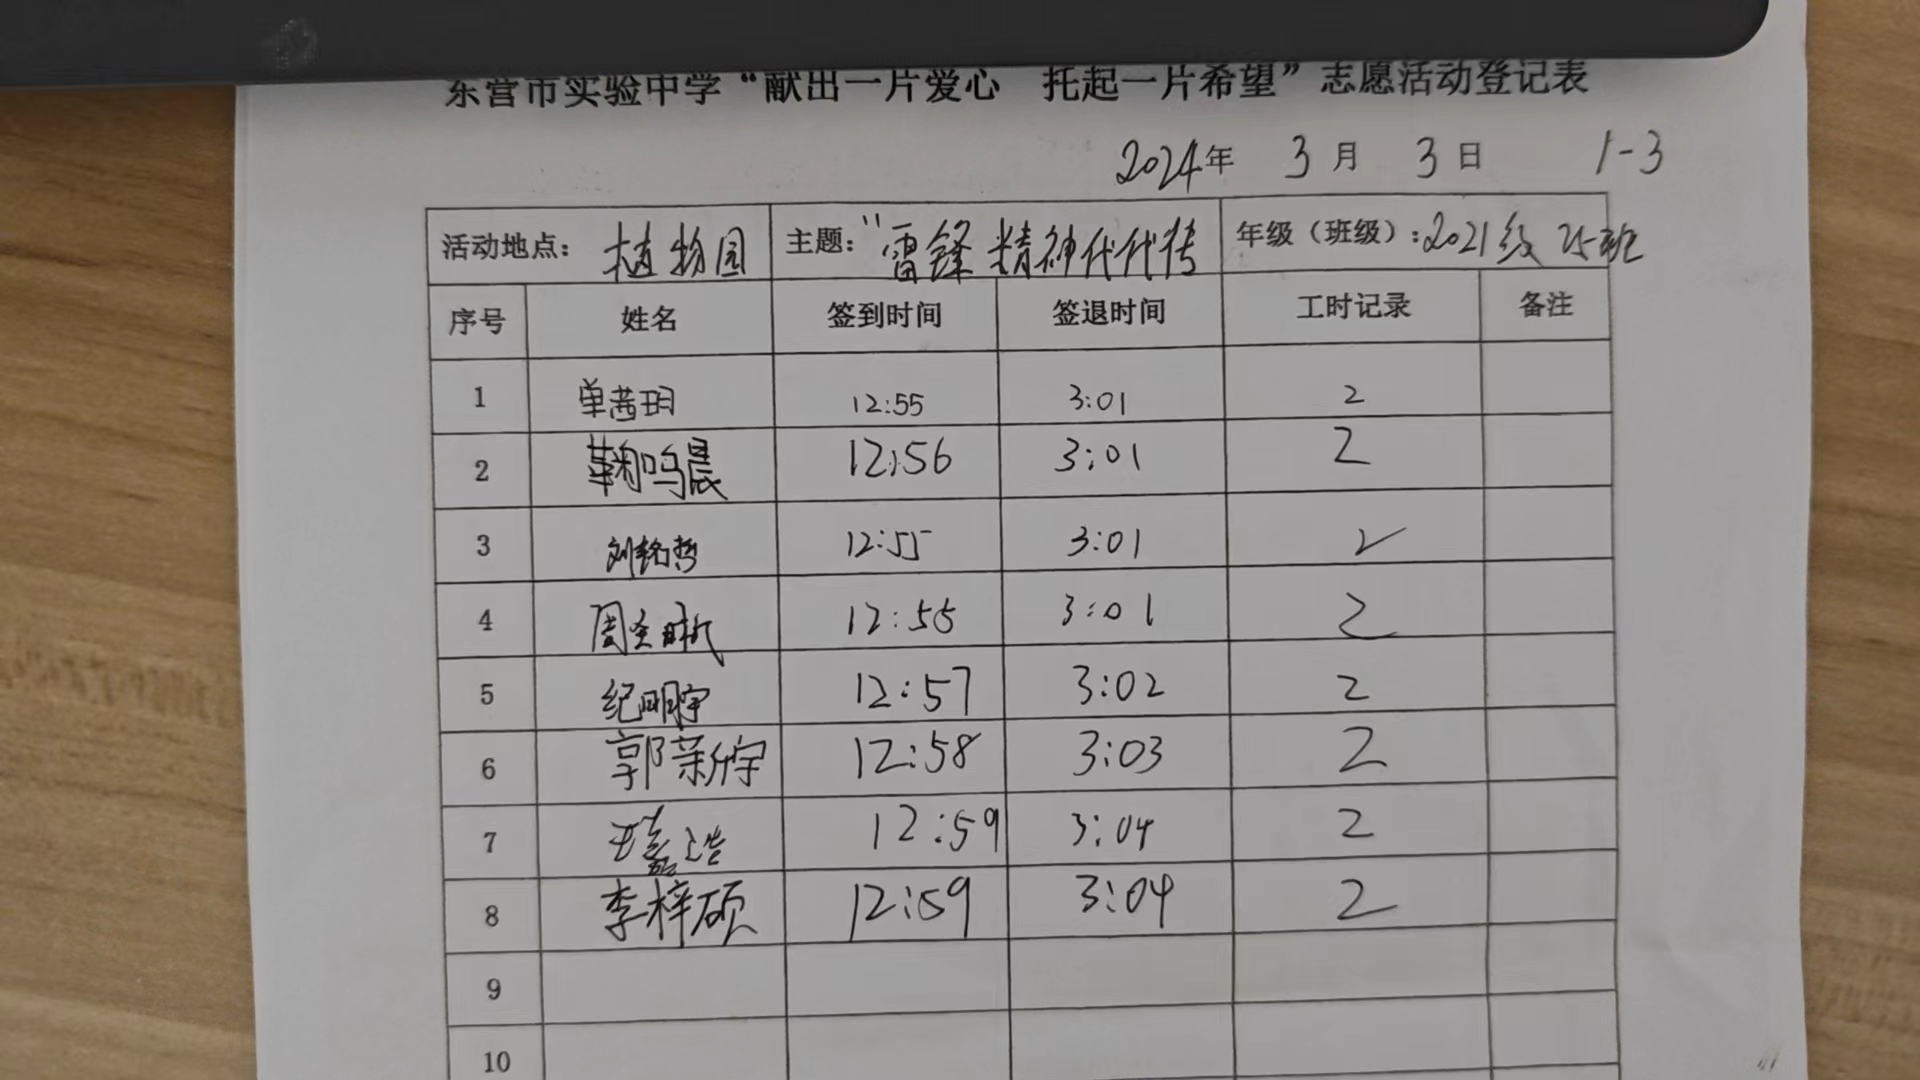 东营市实验中学“献出一片爱心 托起一片希望”志愿活动登记表
2024年 3月 3日 1-3
活动地点：植物园 主题：“雷锋精神代代传 年级（班级）：2021级 班
序号 姓名 签到时间 签退时间 工时记录 备注
1 单茜玥 12:55 3:01 2
2 鞠鸣晨 12:56 3:01 2
3 刘铭哲 12:55 3:01 2
4 周圣 12:55 3:01 2
5 纪明宇 12:57 3:02 2
6 郭新宇 12:58 3:03 2
7 12:59 3:04 2
8 李梓硕 12:59 3:04 2
9
10